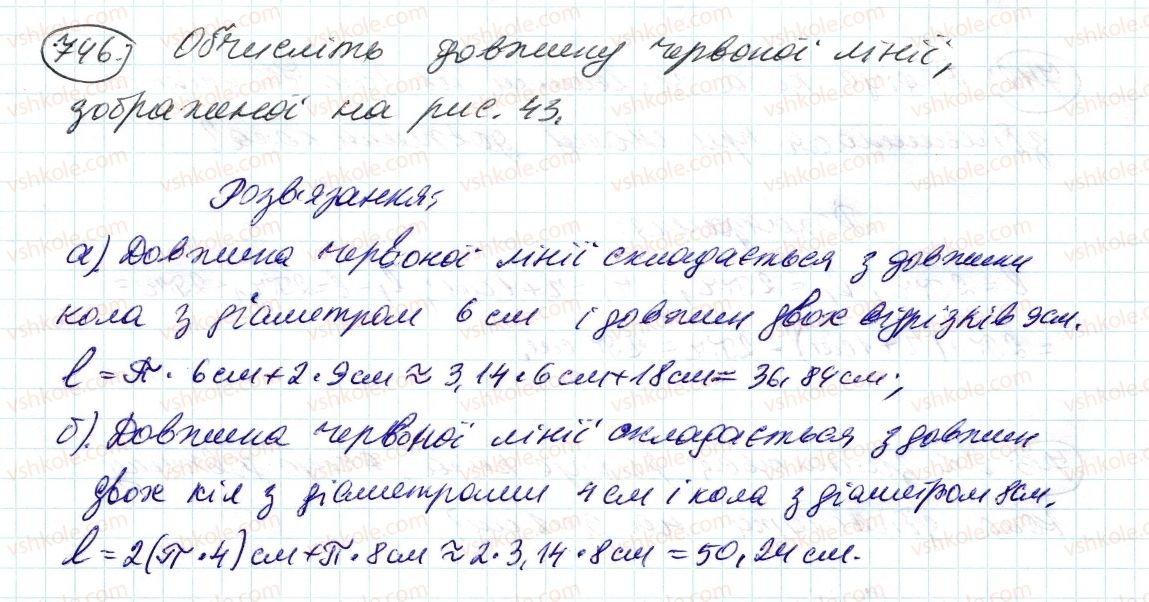 746. Обчисліть довжину червоної лінії,
зображеної на рис. 43.
Розв'язання:
а) Довжина червоної лінії складається з довжини
кола з діаметром 6 см і довжин двох відрізків 9см.
l = π · 6см + 2 · 9см ≈ 3,14 · 6см + 18см = 36,84 см;
б). Довжина червоної лінії складається з довжин
двох кіл з діаметрами 4 см і кола з діаметром 8см.
l = 2(π · 4) см + π · 8см ≈ 2 · 3,14 · 8см = 50,24 см.